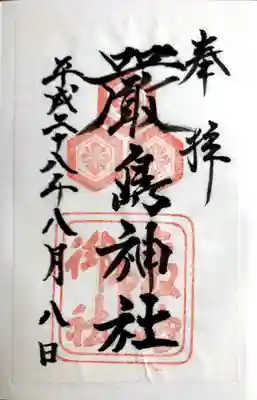 奉拝
嚴島神社
平成二十八年八月八日